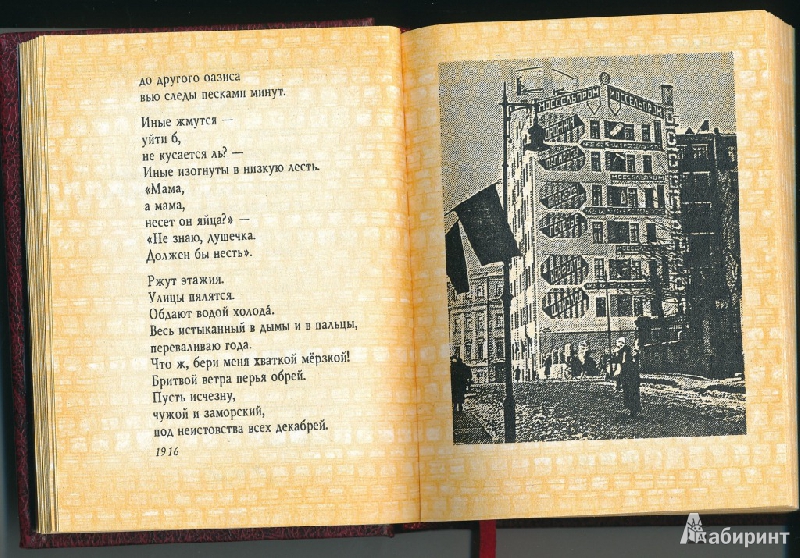 до другого оазиса
вью следы песками минут.
Иные жмутся —
уйти б,
не кусается ль? —
Иные изогнуты в низкую лесть.
«Мама,
а мама,
несет он яйца?» —
«Не знаю, душечка.
Должен бы несть».
Ржут этажия.
Улицы пялятся.
Обдают водой холода́.
Весь истыканный в дымы и в пальцы,
переваливаю года.
Что ж, бери меня хваткой мёрзкой!
Бритвой ветра перья обрей.
Пусть исчезну,
чужой и заморский,
под неистовства всех декабрей.
1916
МОССЕЛЬПРОМ
МОССЕЛЬПРОМ
Лабиринт